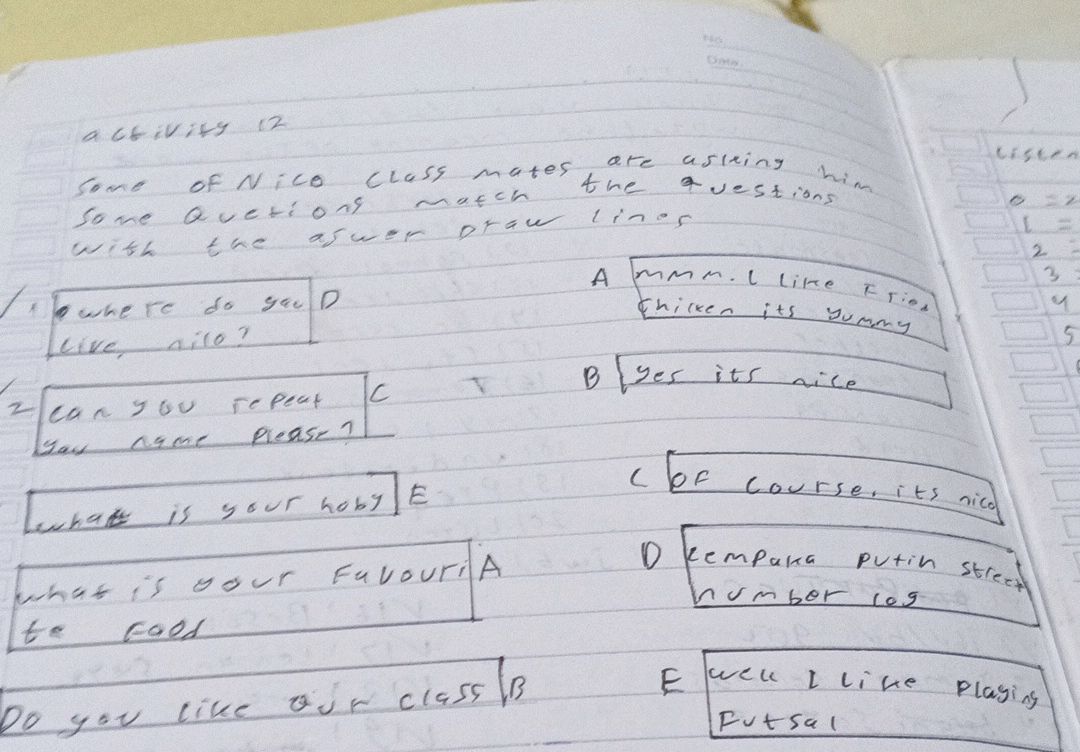 No
Date
activity 12
Some of Nico class mates are asking him
Some Quetions match the questions
with the aswer Draw lines
1 where do you D
live, nico?
2 can you repeat C
you name please?
what is your hoby E
what is your Favouri A
te Food
Do you like our class B
A mmm. I like Fried
Chicken its yummy
B yes its nice
C of course, its nico
D cempaka putih street
number 109
E well I like playing
Futsal
Listen
0 = 2
1 =
2
3
4
5